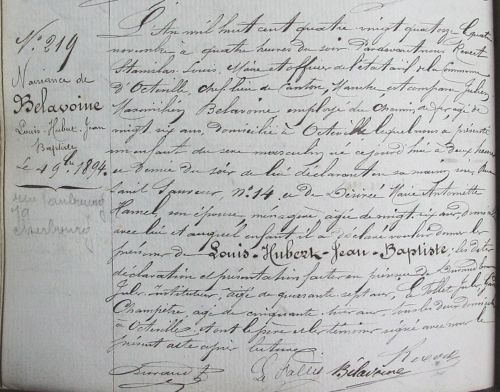 N.° 219
Naissance de
Belavoine
Louis-Hubert-Jean
Baptiste
Le 4 9bre 1894
L'An mil huit cent quatre vingt quatorze, quatre
novembre à quatre heures du soir Pardevant nous
Stanislas Louis, Maire et officier de l'état civil de la Commune
d'Octeville, chef lieu de Canton, Manche est comparu Julien
Maximilien Belavoine employé de Chemin de fer âgé de
vingt six ans, domicilié à Octeville lequel nous a présenté
un enfant du sexe masculin né cejourd'hui à deux heures
et demie du soir de lui déclarant en sa maison, rue
Paul N.° 14, et de Désirée Marie Antoinette
Hamel son épouse, ménagère, âgée de vingt six ans
avec lui et auquel enfant il a déclaré vouloir donner les
prénoms de Louis-Hubert-Jean-Baptiste; les dites
déclaration et présentation faites en présence de
Jules instituteur, âgé de quarante sept ans,
Champêtre, âgé de cinquante ans tous les deux
à Octeville et ont le père et les témoins signé avec nous le
présent acte après lecture.
Belavoine